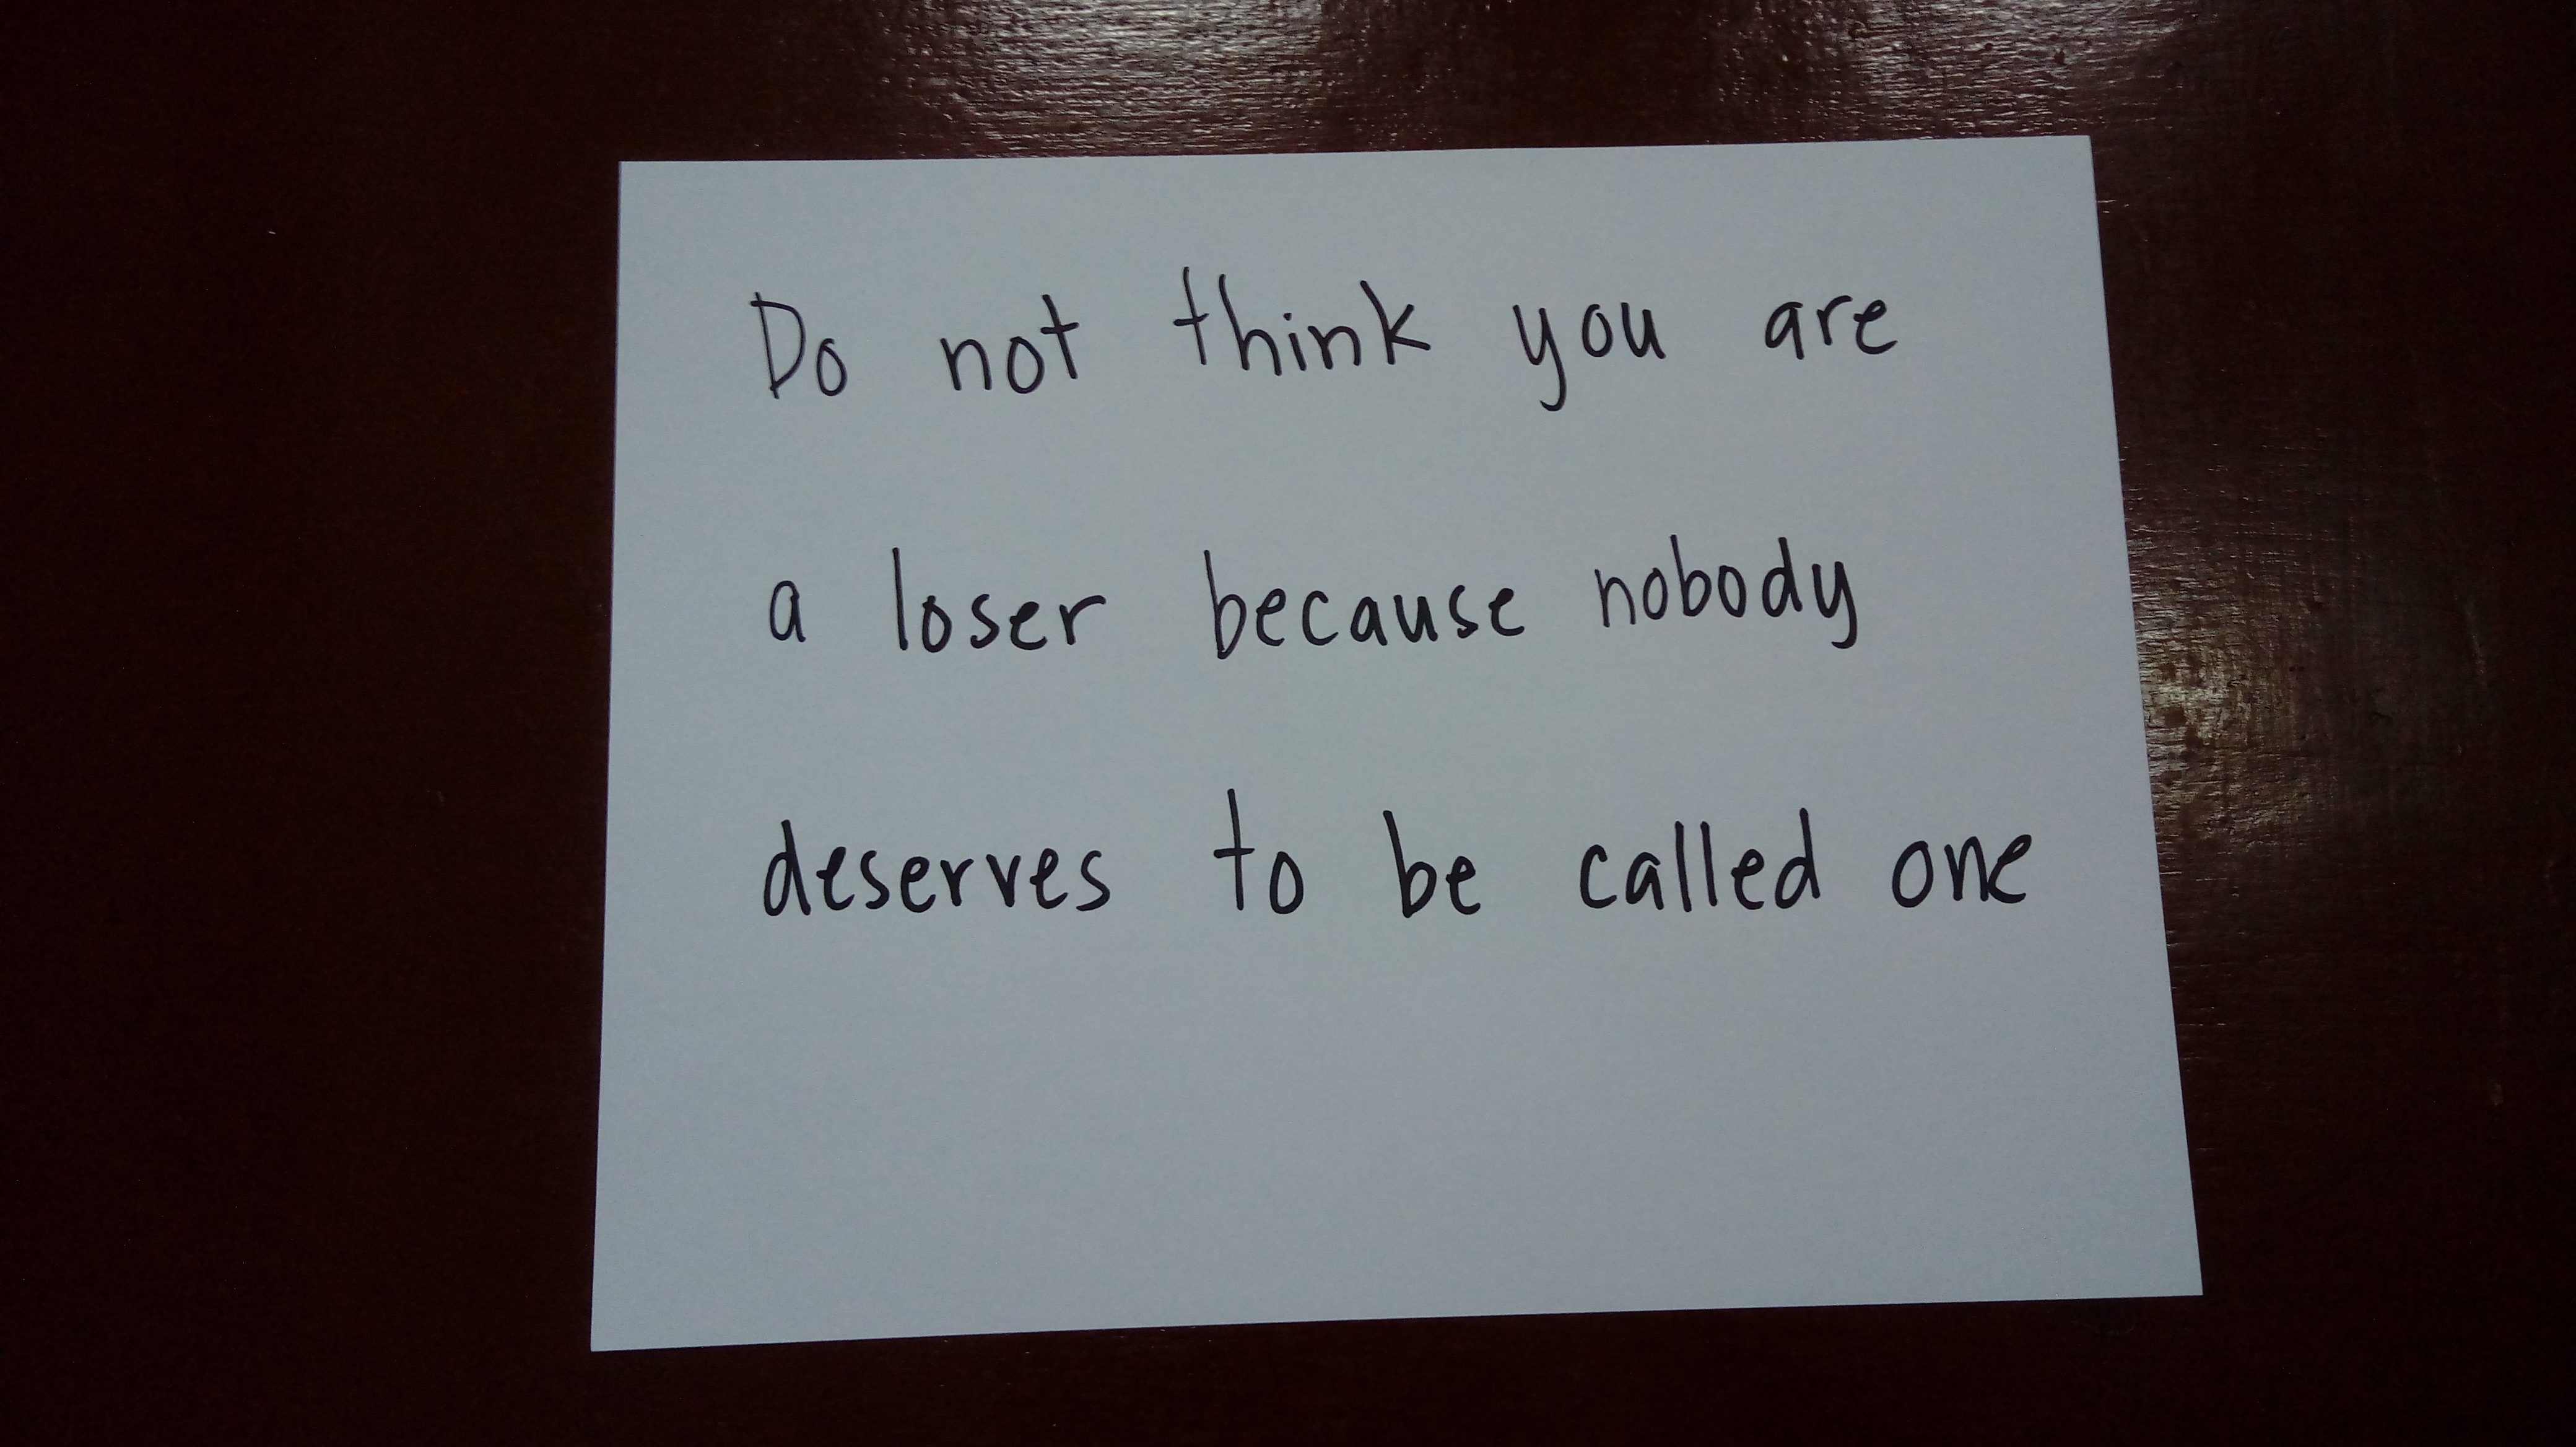 Do not think you are
a loser because nobody
deserves to be called one